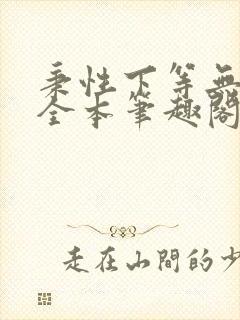 秉性下等無
全本筆趣閣
走在山間的少